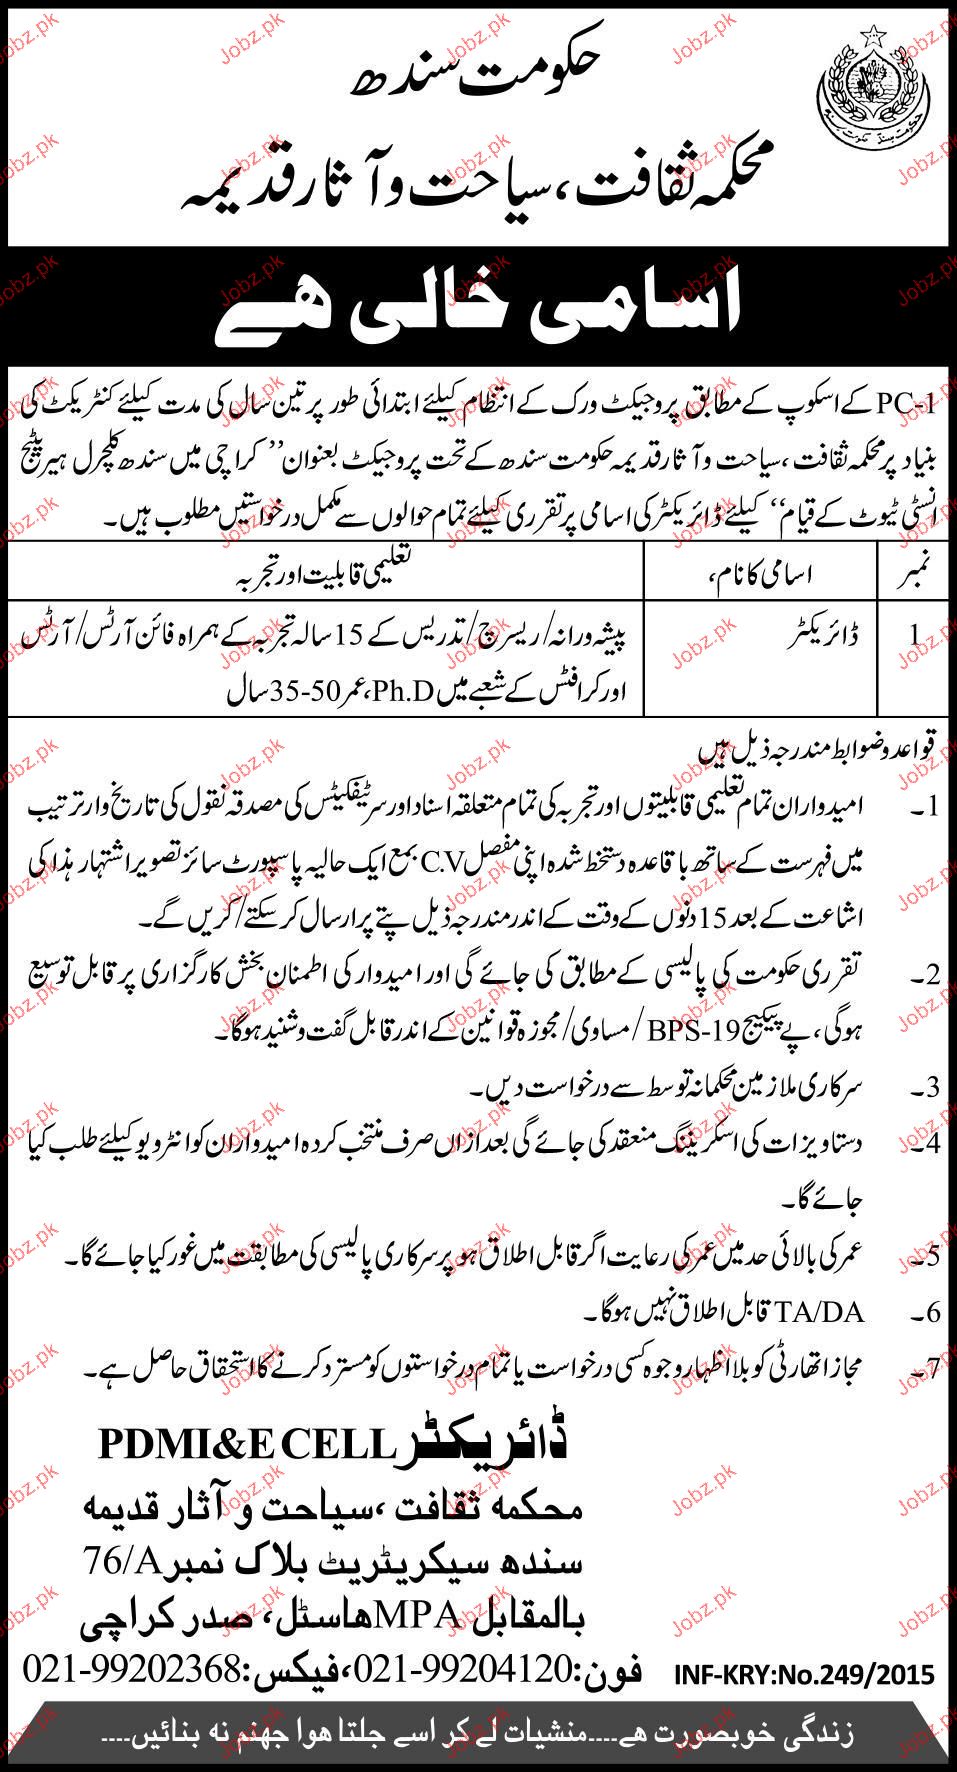 حکومت سندھ
محکمہ ثقافت، سیاحت و آثار قدیمہ
اسامی خالی ھے
PC-1 کے اسکوپ کے مطابق پروجیکٹ ورک کے انتظام کیلئے ابتدائی طور پر تین سال کی مدت کیلئے کنٹریکٹ کی
بنیاد پر محکمہ ثقافت، سیاحت و آثار قدیمہ حکومت سندھ کے تحت پروجیکٹ بعنوان ’’کراچی میں سندھ کلچرل ہیریٹیج
انسٹی ٹیوٹ کے قیام‘‘ کیلئے ڈائریکٹر کی اسامی پر تقرری کیلئے تمام حوالوں سے مکمل درخواستیں مطلوب ہیں۔
نمبر اسامی کا نام، تعلیمی قابلیت اور تجربہ
1 ڈائریکٹر پیشہ ورانہ/ریسرچ/تدریس کے 15 سالہ تجربہ کے ہمراہ فائن آرٹس/آرٹس
اور کرافٹس کے شعبے میں Ph.D، عمر 50-35 سال
قواعد و ضوابط مندرجہ ذیل ہیں
1۔ امیدواران تمام تعلیمی قابلیتوں اور تجربہ کی تمام متعلقہ اسناد اور سرٹیفکیٹس کی مصدقہ نقول کی تاریخ وار ترتیب
میں فہرست کے ساتھ باقاعدہ دستخط شدہ اپنی مفصل C.V بمع ایک حالیہ پاسپورٹ سائز تصویر اشتہار ہذا کی
اشاعت کے بعد 15 دنوں کے وقت کے اندر مندرجہ ذیل پتے پر ارسال کر سکتے/کریں گے۔
2۔ تقرری حکومت کی پالیسی کے مطابق کی جائے گی اور امیدوار کی اطمنان بخش کارگزاری پر قابل توسیع
ہوگی، پے پیکیج BPS-19/مساوی/مجوزہ قوانین کے اندر قابل گفت و شنید ہوگا۔
3۔ سرکاری ملازمین محکمانہ توسط سے درخواست دیں۔
4۔ دستاویزات کی اسکریننگ منعقد کی جائے گی بعد ازاں صرف منتخب کردہ امیدواران کو انٹرویو کیلئے طلب کیا
جائے گا۔
5۔ عمر کی بالائی حد میں عمر کی رعایت اگر قابل اطلاق ہو پر سرکاری پالیسی کی مطابقت میں غور کیا جائے گا۔
6۔ TA/DA قابل اطلاق نہیں ہوگا۔
7۔ مجاز اتھارٹی کو بلا اظہار وجوہ کسی درخواست یا تمام درخواستوں کو مسترد کرنے کا استحقاق حاصل ہے۔
ڈائریکٹر PDMI&E CELL
محکمہ ثقافت ،سیاحت و آثار قدیمہ
سندھ سیکریٹریٹ بلاک نمبر 76/A
بالمقابل MPA ھاسٹل، صدر کراچی
فون: 021-99204120، فیکس: 021-99202368
INF-KRY:No.249/2015
زندگی خوبصورت ھے....منشیات لے کر اسے جلتا ھوا جھنم نہ بنائیں....